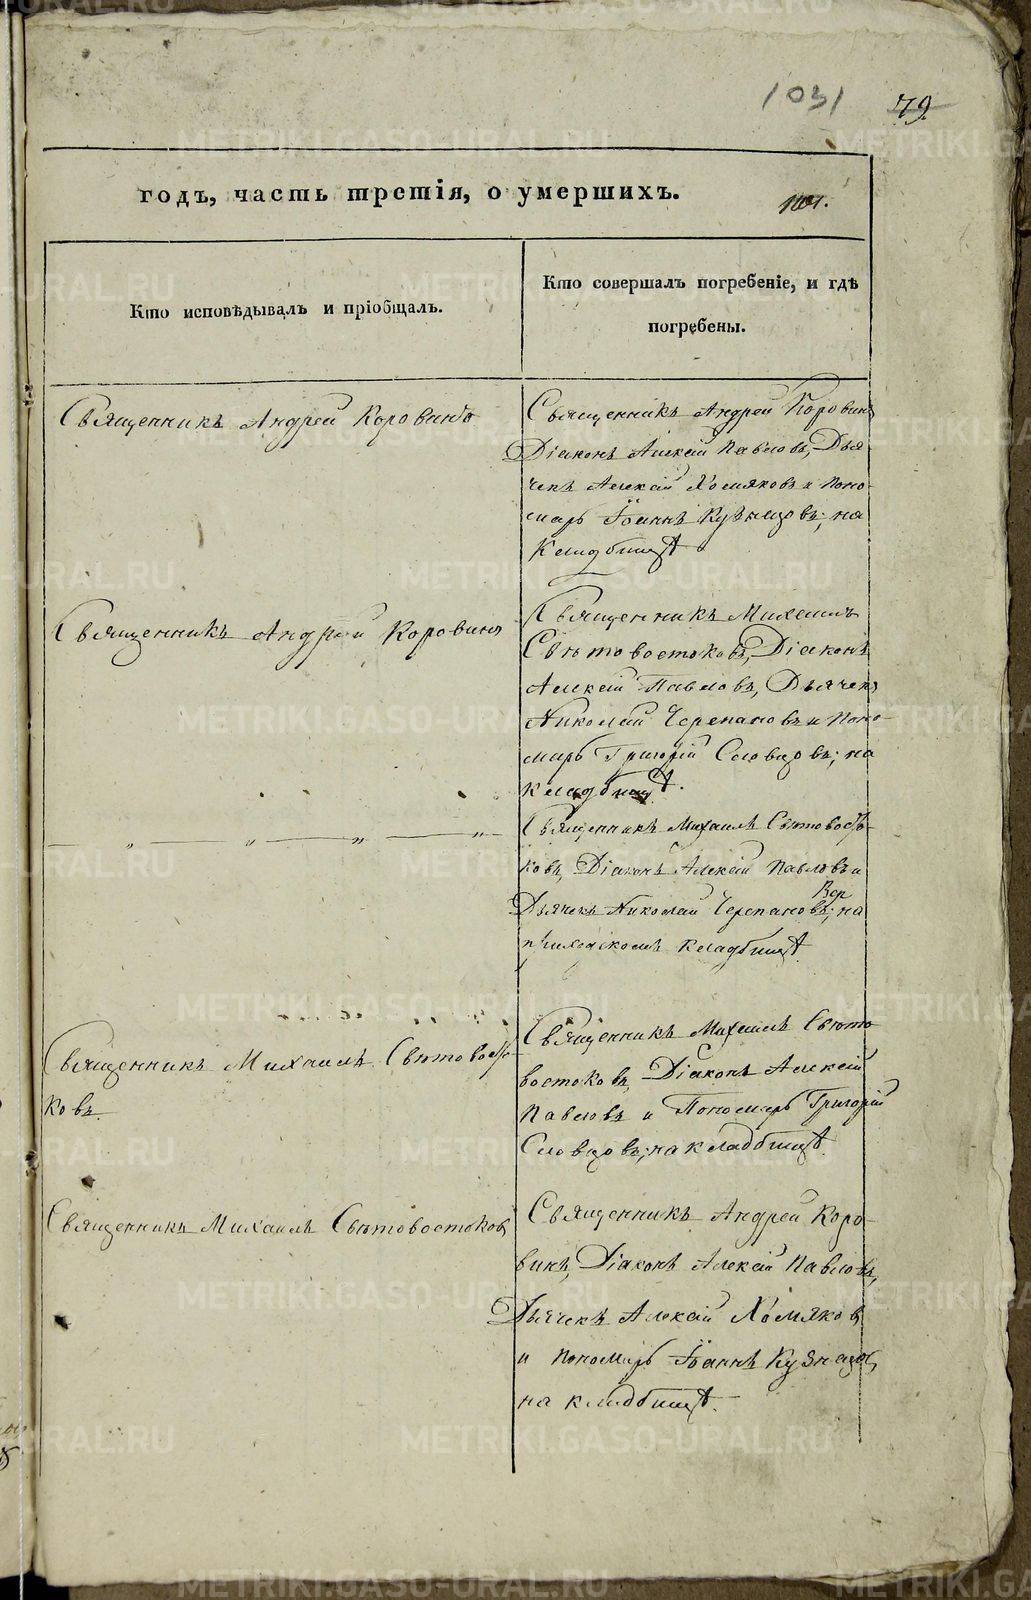 1031 79.
годъ, часть третія, о умершихъ.
Кто исповѣдывалъ и пріобщалъ.
Кто совершалъ погребеніе, и гдѣ
погребены.
Священникъ Андрей Коровинъ
Священникъ Андрей Коровинъ
Діаконъ Алексій Павловъ, Дья-
чекъ Алексій Хомяковъ и Поно-
марь Іоаннъ Кузнецовъ; на
Кладбищѣ
Священникъ Андрей Коровинъ
Священникъ Михаилъ
Свѣтовостоковъ, Діаконъ
Алексій Павловъ, Дьячекъ
Николай Черепановъ и Поно-
марь Григорій Словцовъ; на
кладбищѣ.
— „ — „ — „ — „ —
Священникъ Михаилъ Свѣтовосто-
ковъ, Діаконъ Алексій Павловъ и
Дьячекъ Николай Черепановъ; на
Вер
приходскомъ кладбищѣ
Священникъ Михаилъ Свѣтовосто-
ковъ
Священникъ Михаилъ Свѣто-
востоковъ, Діаконъ Алексій
Павловъ и Пономарь Григорій
Словцовъ; на кладбищѣ.
Священникъ Михаилъ Свѣтовостоковъ
Священникъ Андрей Коро-
винъ, Діаконъ Алексій Павловъ,
Дьячекъ Алексій Хомяковъ
и пономарь Іоаннъ Кузнецовъ,
на кладбищѣ.
METRIKI.GASO-URAL.RU